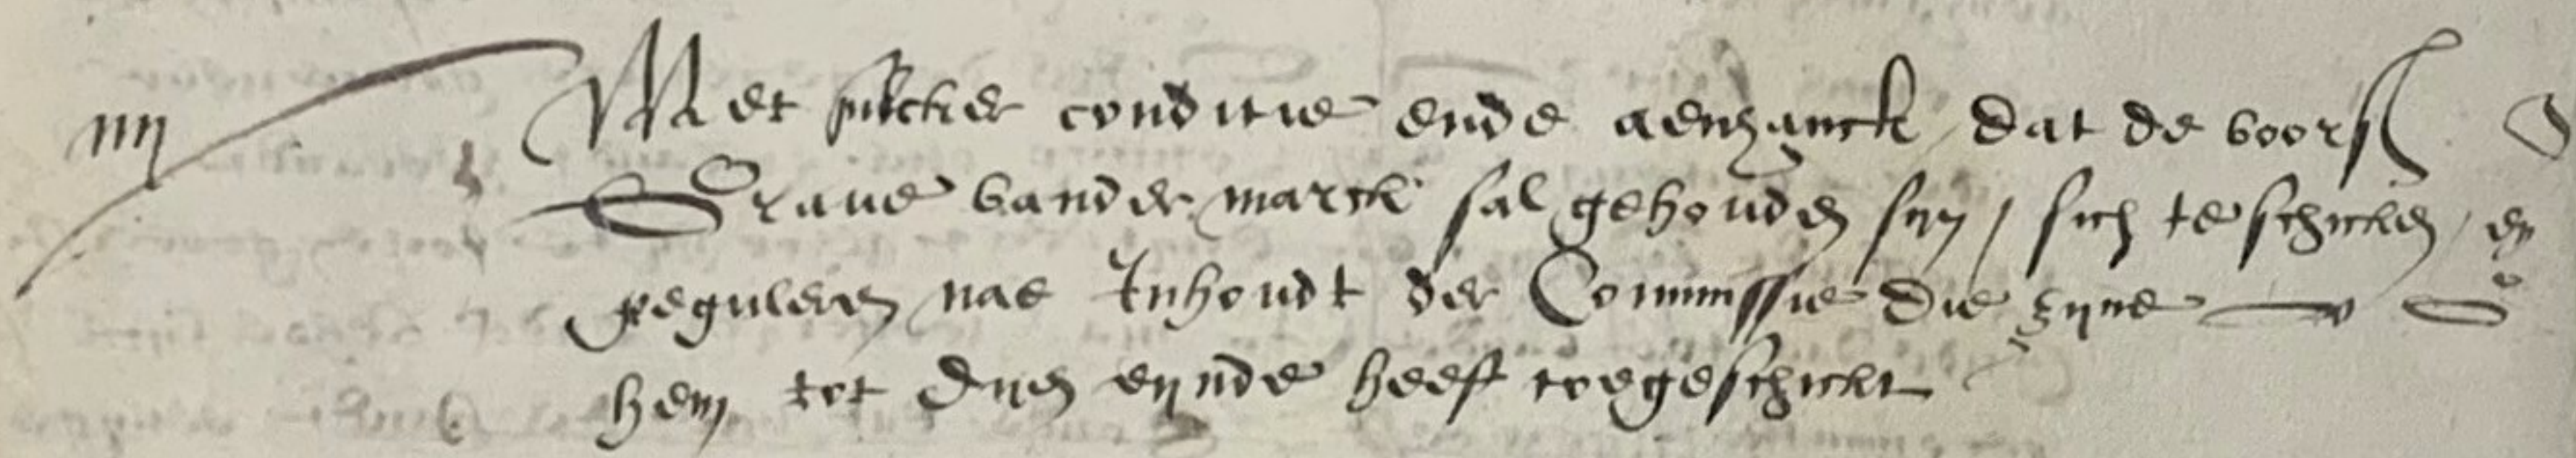 iiij Met sulcker conditie ende aenhanck, dat de voors
Graue vander marck sal gehouden sijn / sich te schicken, en
reguleren nae Inhoudt der Commissie die zijne
hem tot dien eijnde heeft toegeschickt